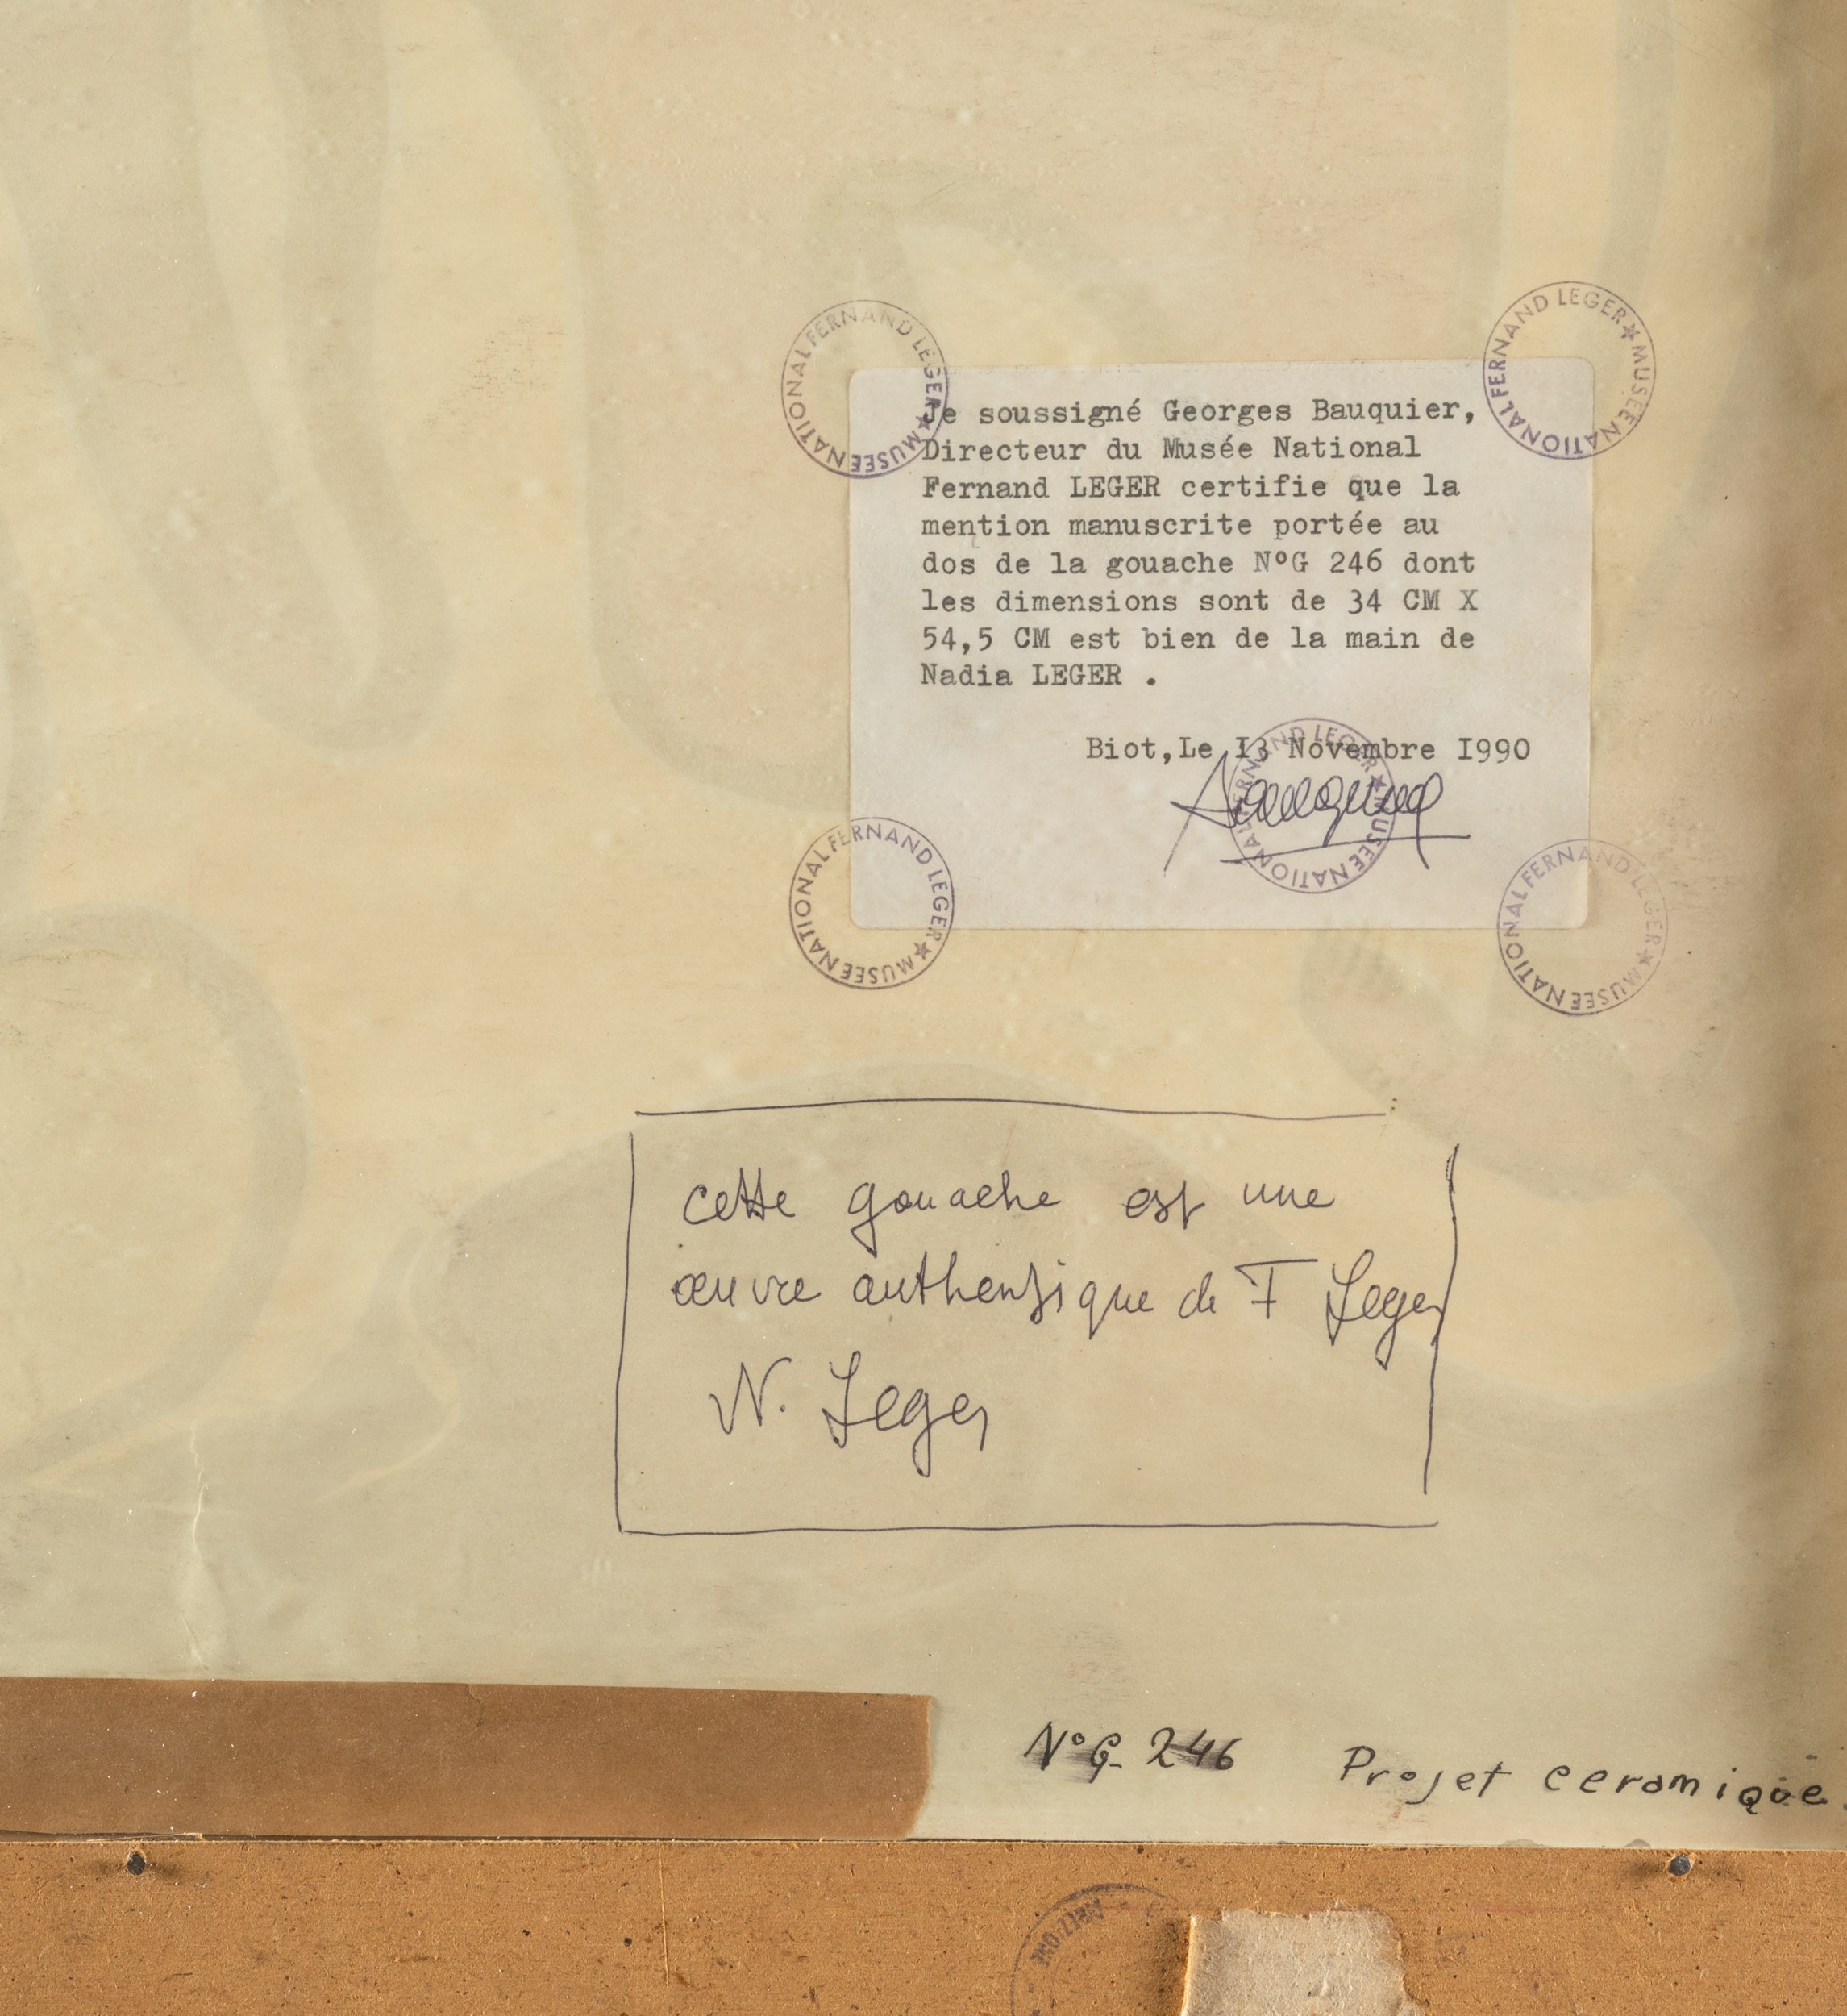 MUSEE NATIONAL FERNAND LEGER ★
MUSEE NATIONAL FERNAND LEGER ★
Je soussigné Georges Bauquier,
Directeur du Musée National
Fernand LEGER certifie que la
mention manuscrite portée au
dos de la gouache N°G 246 dont
les dimensions sont de 34 CM X
54,5 CM est bien de la main de
Nadia LEGER .
Biot,Le I3 Novembre I990
MUSEE NATIONAL FERNAND LEGER ★
MUSEE NATIONAL FERNAND LEGER ★
MUSEE NATIONAL FERNAND LEGER ★
cette gouache est une
œuvre authentique de F Leger
N. Leger
N°G 246 Projet ceramique